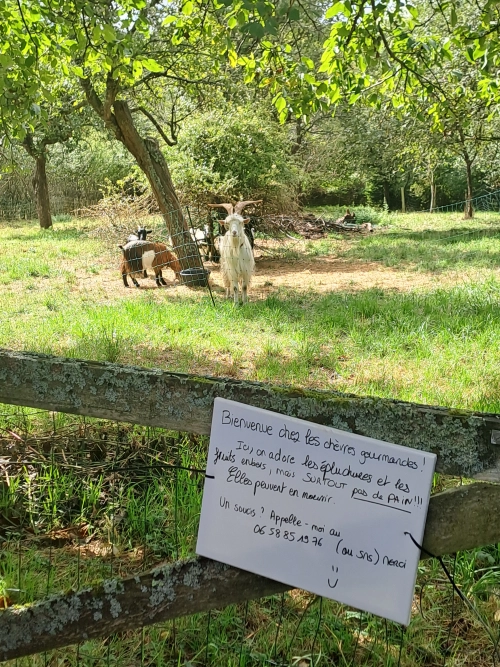 Bienvenue chez les chèvres gourmandes !
Ici, on adore les épluchures et les
fruits entiers ; mais SURTOUT pas de PAIN !!!
Elles peuvent en mourir.
Un soucis ? Appelle-moi au
06 58 85 19 76 (ou sms) merci